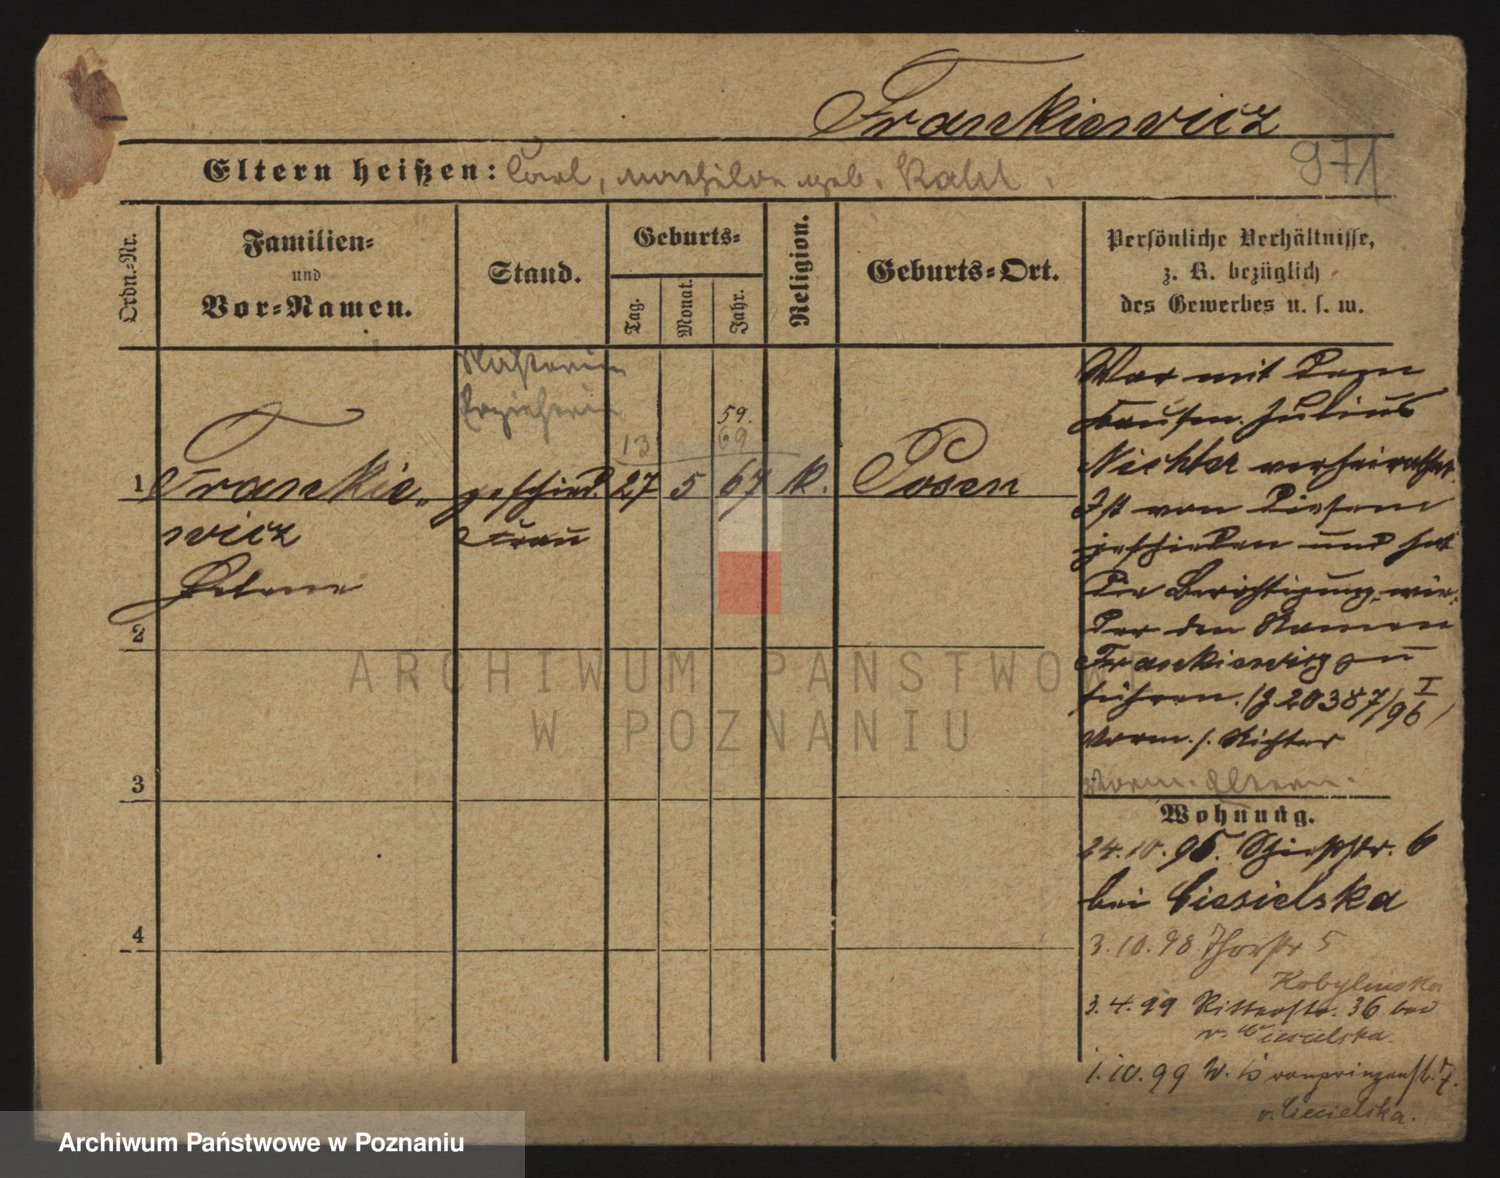 Frankiewicz
971
Eltern heißen: Carl, Mathilde geb. Kahl.
Ordn.-Nr.
Familien-
und
Vor-Namen.
Stand.
Geburts-
Tag.
Monat.
Jahr.
Religion.
Geburts-Ort.
Persönliche Verhältnisse,
z. B. bezüglich
des Gewerbes u. s. w.
Erzieherin
59.
13 69
1 Frankie- geschied. 27 5 67 k. Posen
wicz Frau
Helene
2
3
4
War mit dem
Kaufm. Julius
Richter verheirathet.
Ist von diesem
geschieden und hat
die Berichtigung, wie-
der den Namen
Frankiewicz zu
führen. (J 20387/96 I)
Vorm. s. Richter
Vorm. Eltern.
Wohnung.
24.10.95. Schießstr. 6
bei Ciesielska
3.10.98 Thorstr 5
Kobylinska
3.4.99 Ritterstr. 36 bei
v. Ciesielska.
1.10.99 W. Kronprinzenstr. 7.
v. Ciecielska.
ARCHIWUM PAŃSTWOWE
W POZNANIU
Archiwum Państwowe w Poznaniu